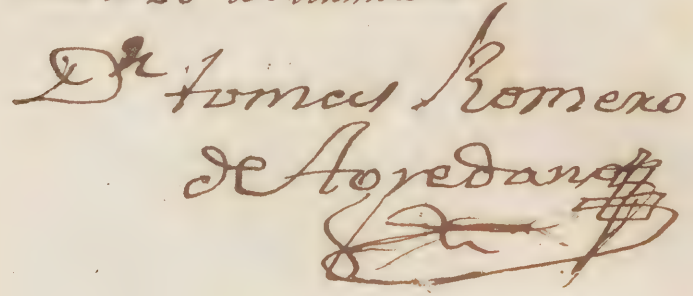 Dr tomas Romero
de Agredano